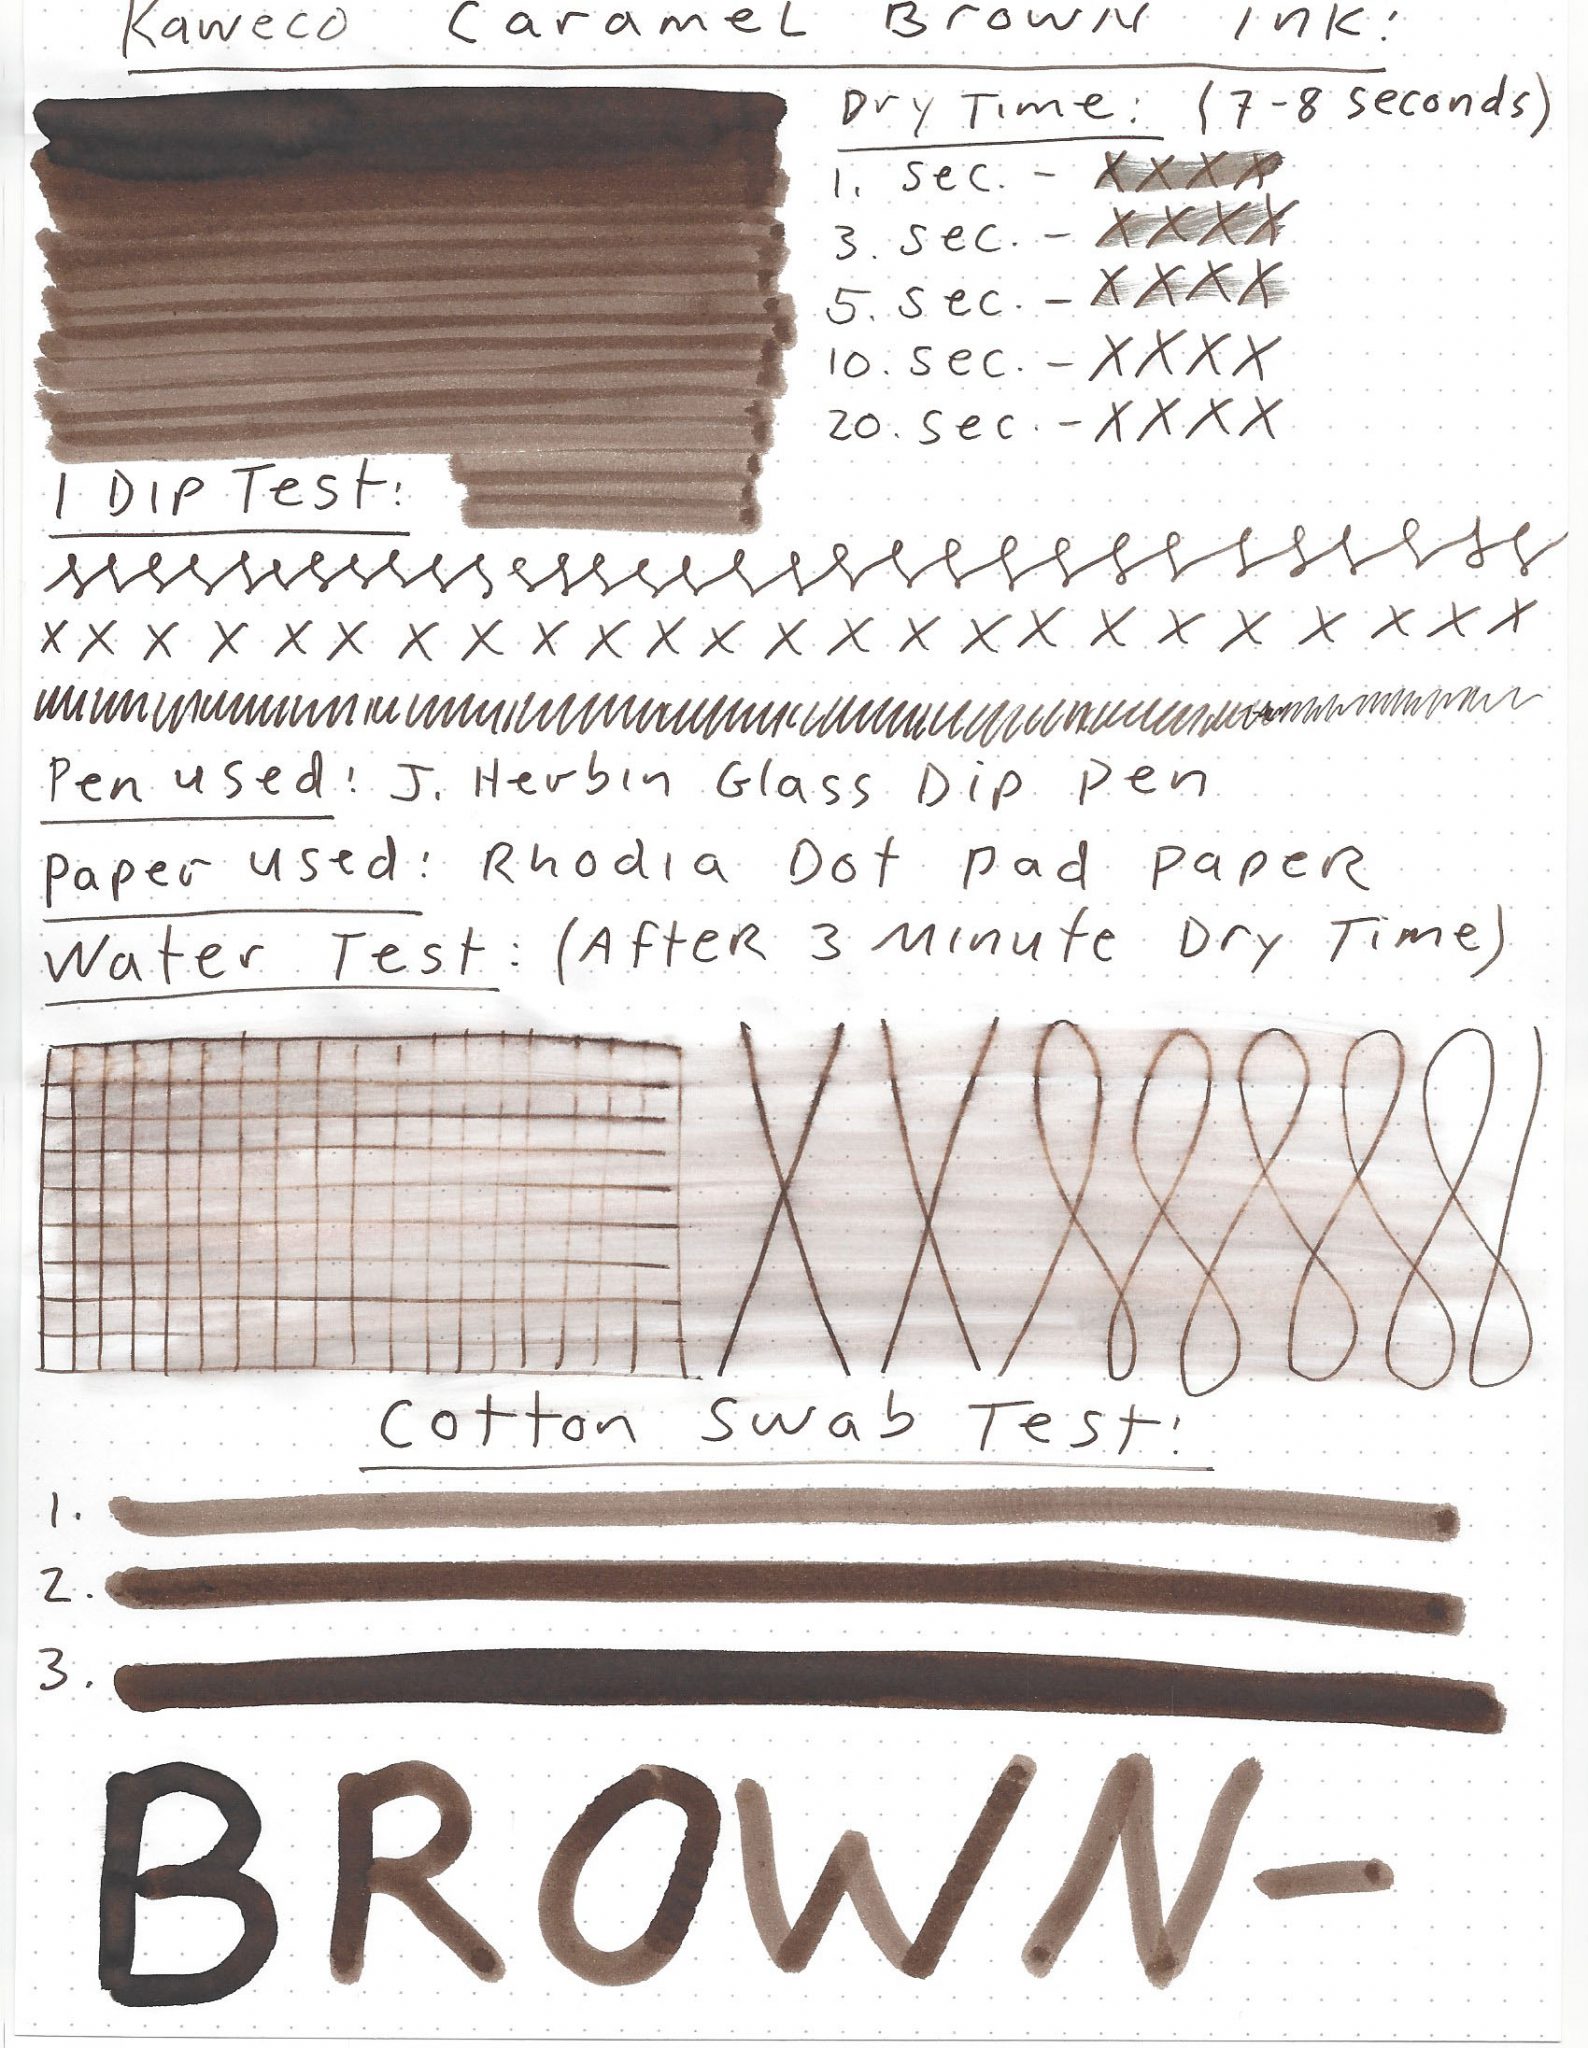 Kaweco Caramel Brown Ink:
Dry Time: (7-8 seconds)
1. sec. - XXXX
3. sec. - XXXX
5. sec. - XXXX
10. sec. - XXXX
20. sec. - XXXX
1 Dip Test:
X X X X X X X X X X X X X X X X X X X X X X X X
Pen used: J. Herbin Glass Dip Pen
Paper used: Rhodia Dot Pad Paper
Water Test: (After 3 Minute Dry Time)
Cotton Swab Test:
1.
2.
3.
BROWN-